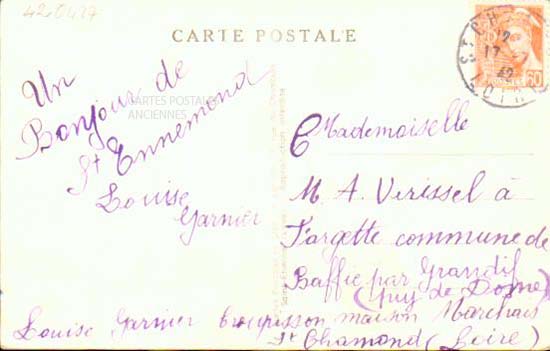 420427
CARTE POSTALE
Un
Bonjour de
St Ennemond
Louise
Garnier
CARTES POSTALES
ANCIENNES
Mademoiselle
M. A. Verissel à
Fargette commune de
Baffie par Grandif
(Puy de Dome)
Louise Garnier maison Marchais
St Chamond (Loire)
60
12
17
42
LOIRE